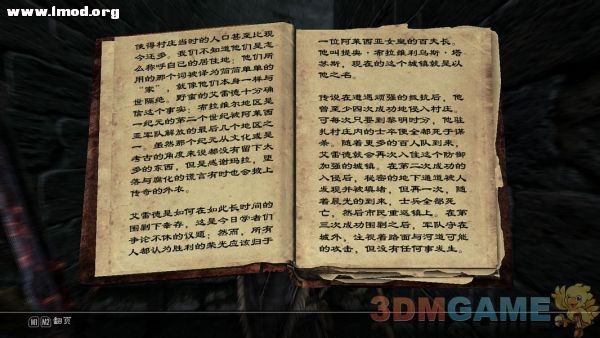 www.lmod.org
使得村庄当时的人口甚至比现
今还多。我们不知道他们是怎
么称呼自己的居住地；他们所
用的那个词被译为简简单单的
“家”，就像他们本身一样与
世隔绝。野蛮的艾雷德十分确
信这个事实：布拉维尔地区是
一纪元的第二个世纪被阿莱西
亚军队解放的最后几个地区之
一。虽然那个纪元从文化或是
考古的角度来说都没有留下太
多的东西，但是感谢玛拉，堕
落与腐化的谎言有时也会披上
传奇的外衣。
艾雷德是如何在如此长时间的
围剿下幸存，这是今日学者们
争论不休的议题；然而，所有
人都认为胜利的荣光应该归于
一位阿莱西亚女皇的百夫长。
他叫提奥·布拉维利乌斯·塔
苏斯，现在的这个城镇就是以
他之名。
传说在遭遇顽强的抵抗后，他
曾至少四次成功地侵入村庄。
可每次只要到黎明时分，他驻
扎村庄内的士卒便全都死于谋
杀。随着更多的百人队到来，
艾雷德就会再次入住这个防御
加强的城镇。在第二次成功的
入侵后，秘密的地下通道被人
发现并被填堵，但再一次，随
着晨光的到来，士兵全部死
亡，然后市民重返镇上。在第
三次成功围剿之后，军队守在
城外，注视着路面与河道可能
的攻击，但没有任何事发生。
M1 M2 翻页
3DMGAME